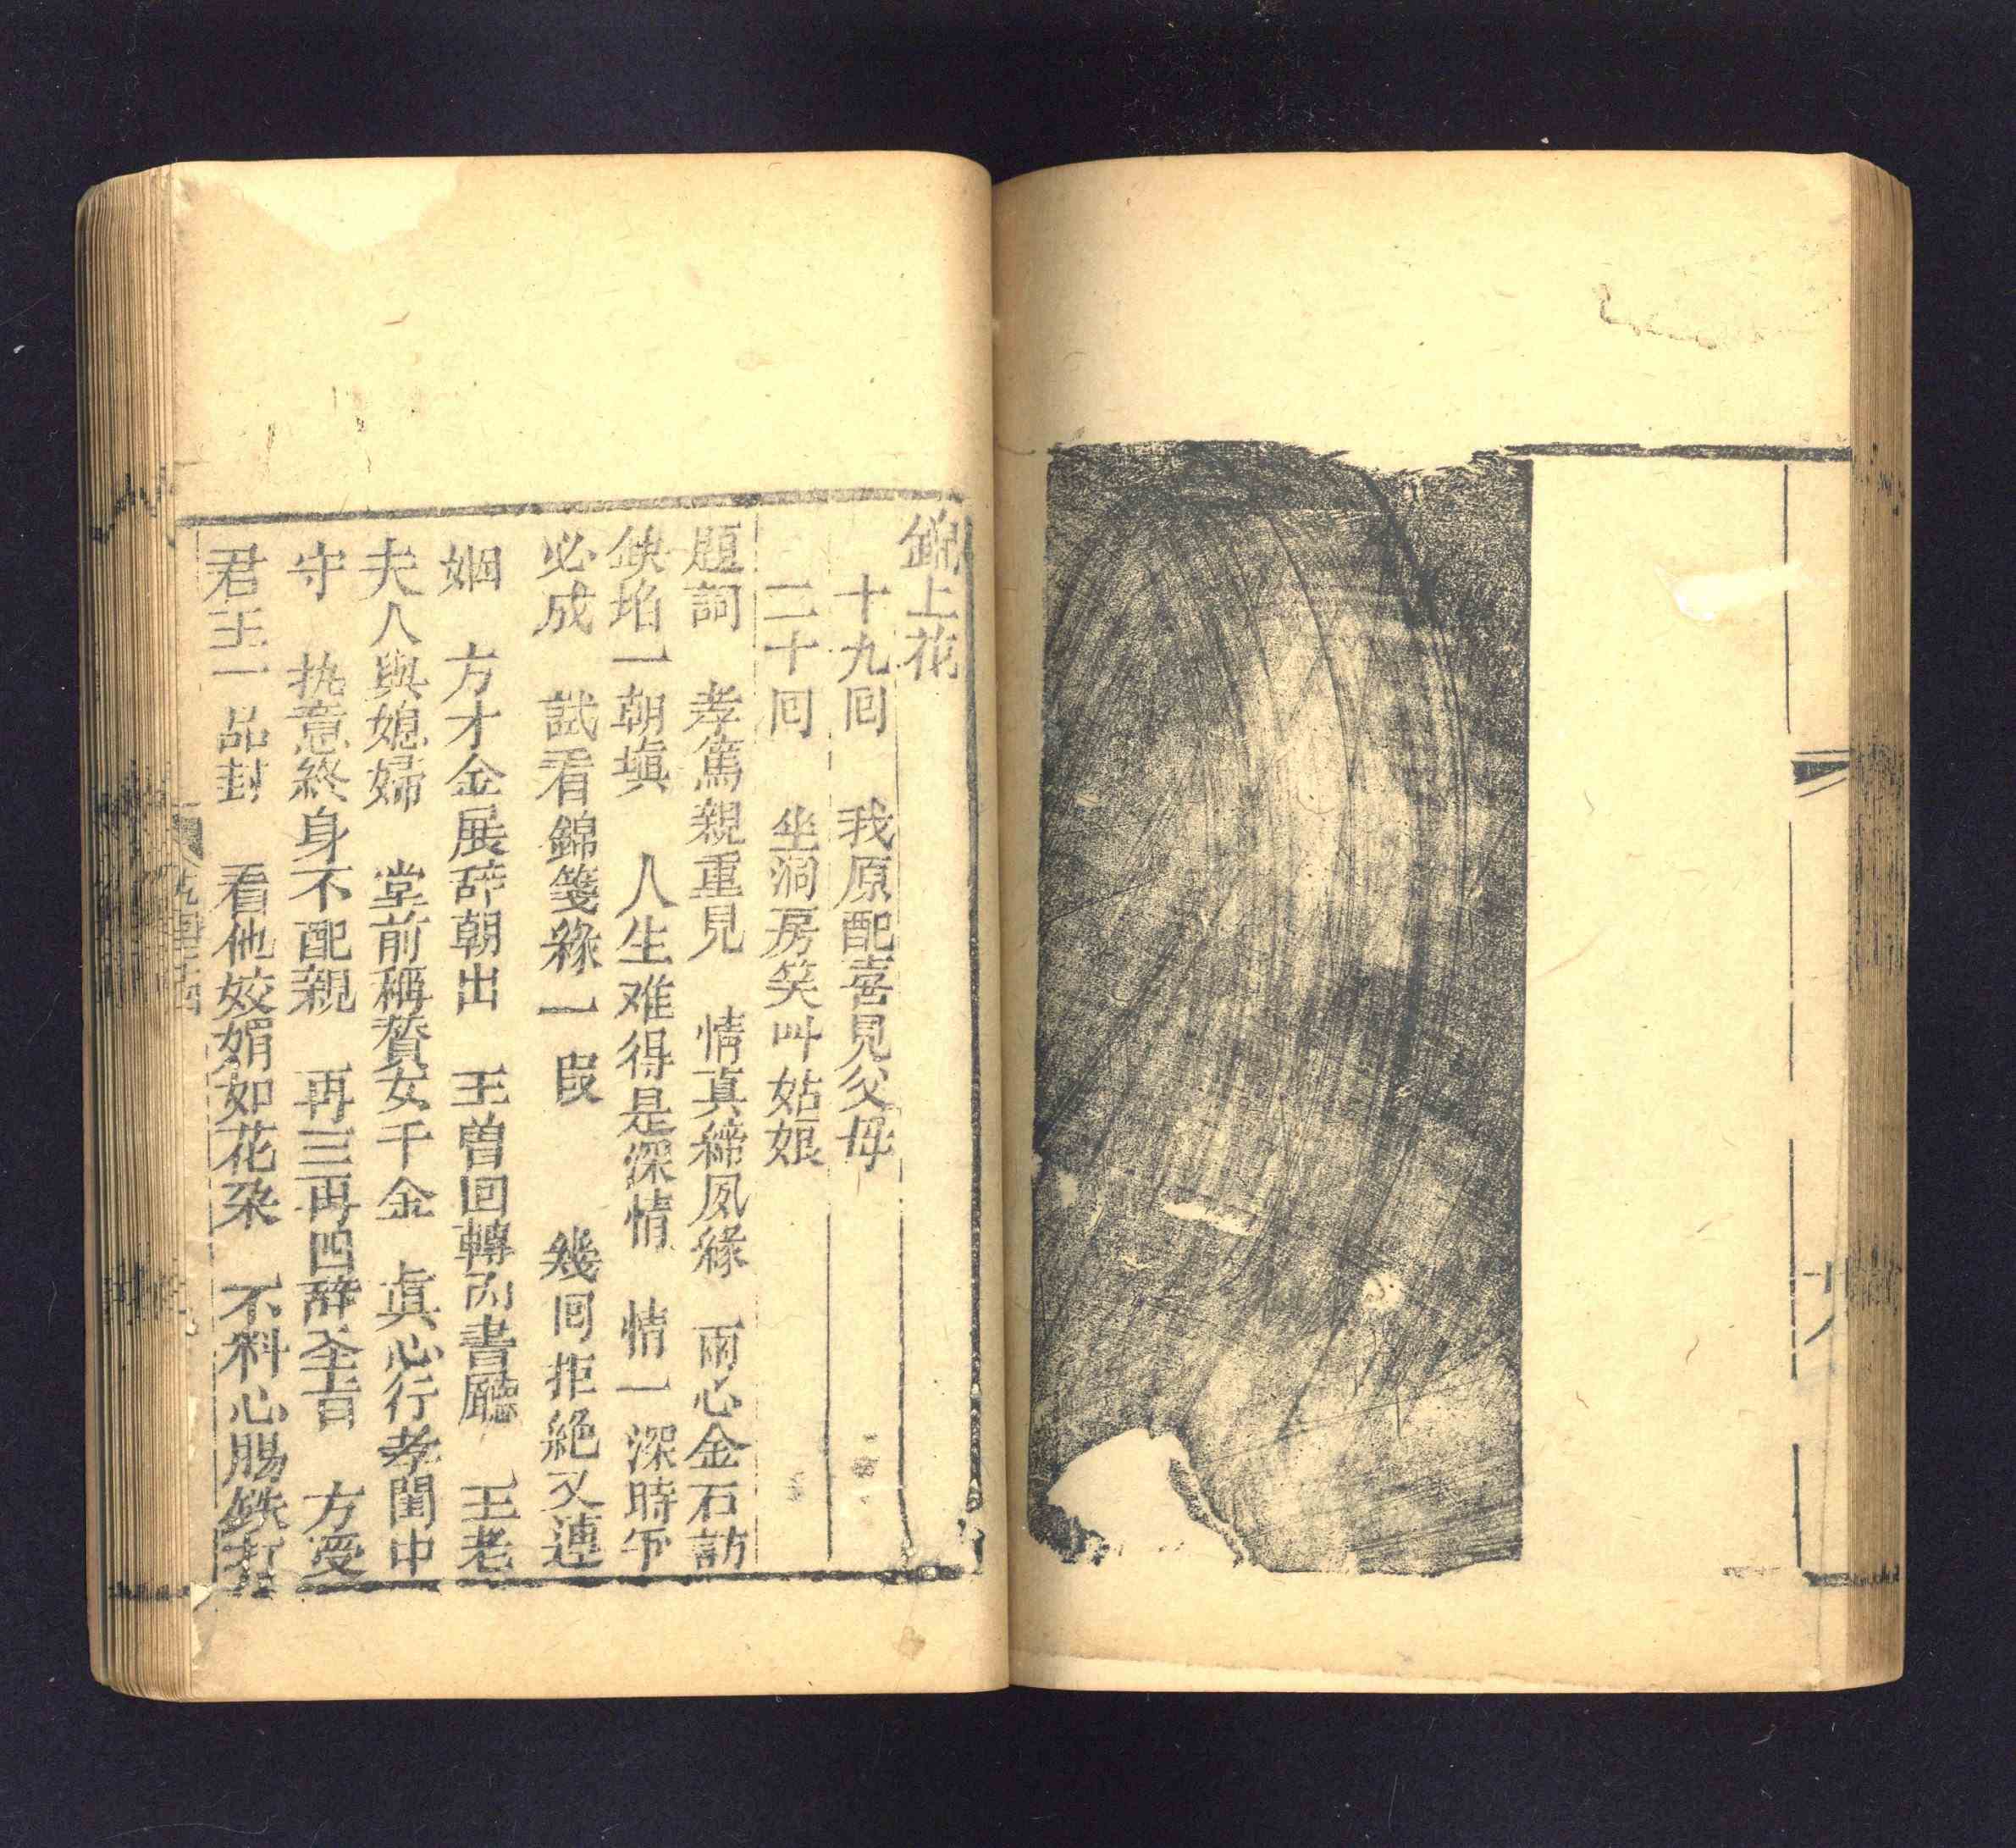 錦上花
十九囘 我原配喜見父母
二十囘 坐洞房笑叫姑娘
題詞 孝篤親重見 情真締夙緣 兩心金石訪
缺陷一朝塡 人生难得是深情 情一深時事
必成 試看錦箋緣一叚 幾囘拒絶又連
姻 方才金展辞朝出 王曾回轉內書廳 王老
夫人與媳婦 堂前稱賛女千金 眞心行孝閨中
守 执意終身不配親 再三再四辞全旨 方受
君王一品封 看他姣媚如花朶 不料心腸鉄打